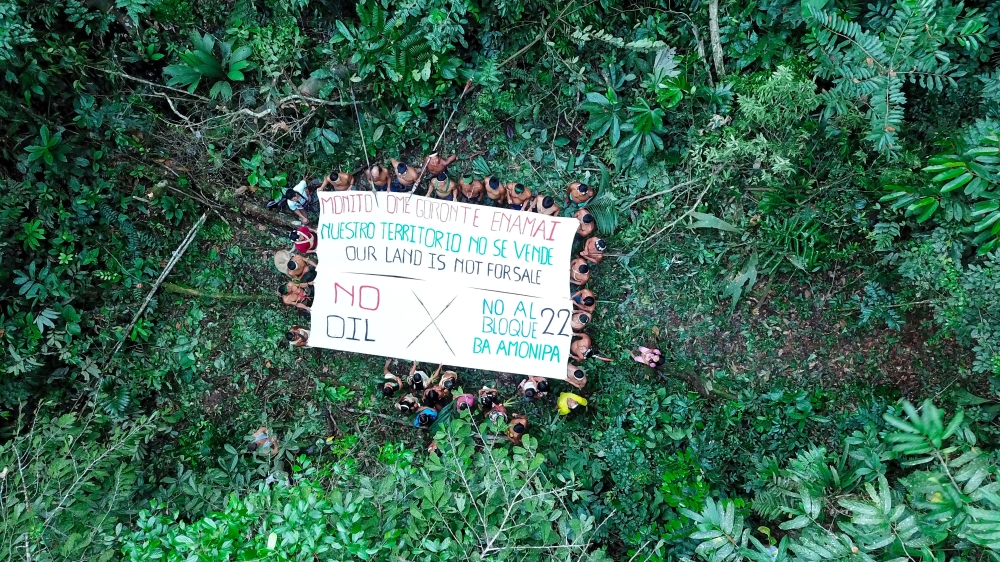 MONITO OME GORONTE ENAMAI
NUESTRO TERRITORIO NO SE VENDE
OUR LAND IS NOT FOR SALE
NO
OIL
X
NO AL
BLOQUE 22
BA AMONIPA